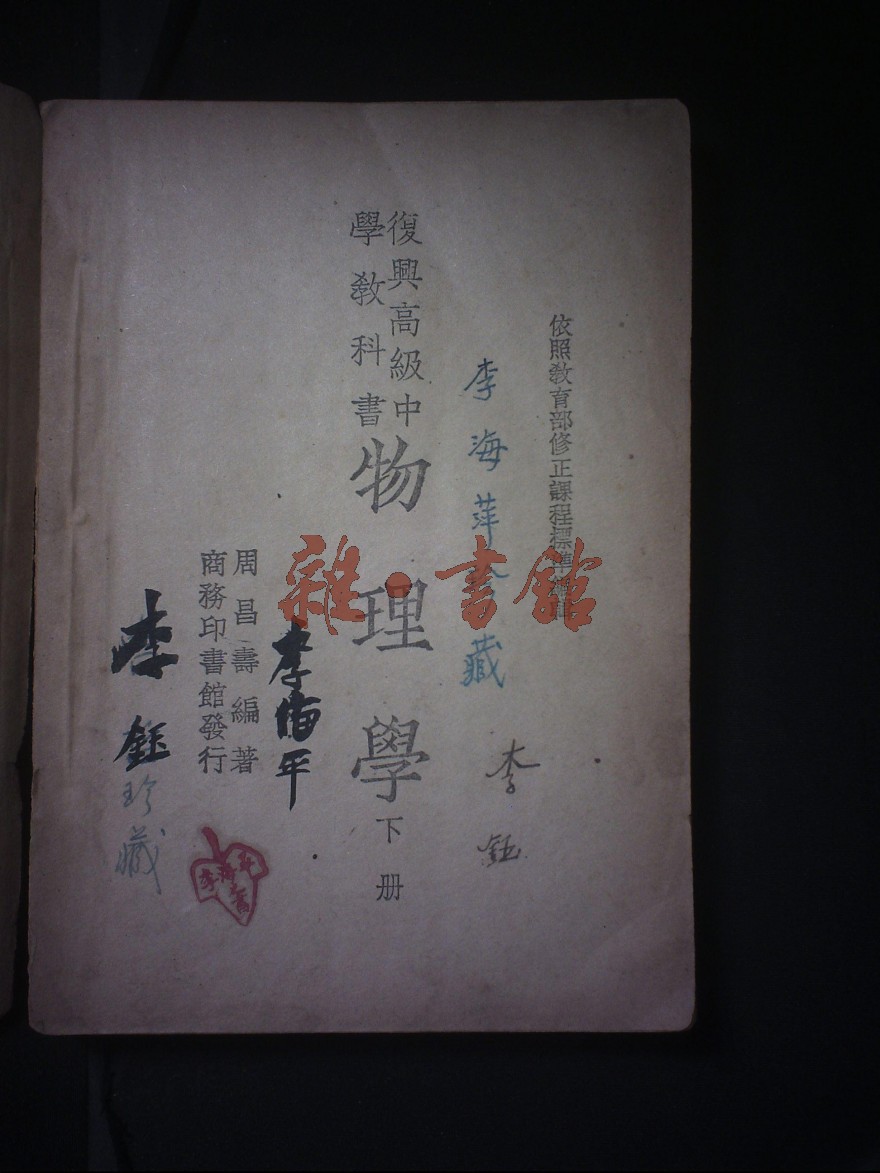 依照教育部修正課程標準編
李海萍珍藏
李鈺
復興高級中
學教科書
物理學
下册
李海平
周昌壽編著
商務印書館發行
李鈺珍藏
雜·書館